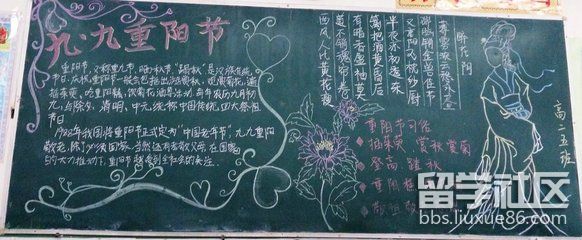 九·九重阳节
重阳节,又称重九节、晒秋节、"踏秋",是汉族传统
节日。庆祝重阳节一般会包括出游赏秋、登高远眺、
插茱萸、吃重阳糕、饮菊花酒等活动,每年农历九月初
九,与除夕、清明、中元统称中国传统四大祭祖
节日。
1988年我国将重阳节正式定为"中国老年节"。九九重阳
醉花阴
薄雾浓云愁永昼
瑞脑销金兽佳节
又重阳玉枕纱厨
半夜凉初透东
篱把酒黄昏后
有暗香盈袖莫
道不销魂帘卷
西风人比黄花瘦
重阳节习俗
插茱萸、赏秋 赏菊
登高、踏秋
高二五班
留学社区
bbs.liuxue86.com